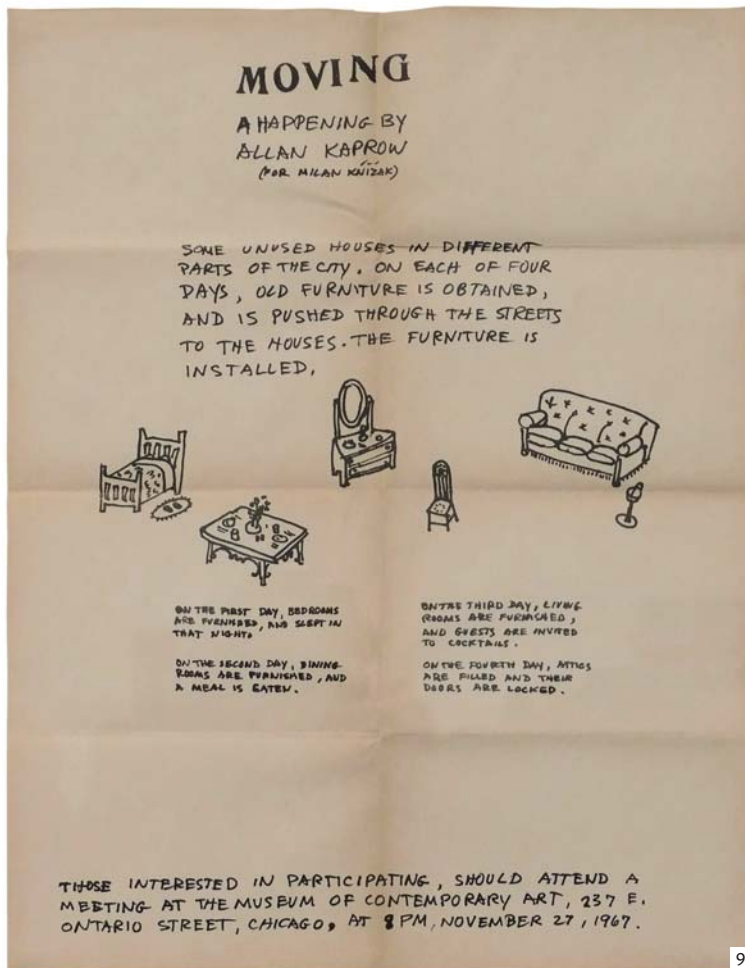 MOVING
A HAPPENING BY
ALLAN KAPROW
(FOR MILAN KNÍŽÁK)
SOME UNUSED HOUSES IN DIFFERENT
PARTS OF THE CITY. ON EACH OF FOUR
DAYS, OLD FURNITURE IS OBTAINED,
AND IS PUSHED THROUGH THE STREETS
TO THE HOUSES. THE FURNITURE IS
INSTALLED.
ON THE FIRST DAY, BEDROOMS
ARE FURNISHED, AND SLEPT IN
THAT NIGHT.
ON THE SECOND DAY, DINING
ROOMS ARE FURNISHED, AND
A MEAL IS EATEN.
ON THE THIRD DAY, LIVING
ROOMS ARE FURNISHED,
AND GUESTS ARE INVITED
TO COCKTAILS.
ON THE FOURTH DAY, ATTICS
ARE FILLED AND THEIR
DOORS ARE LOCKED.
THOSE INTERESTED IN PARTICIPATING, SHOULD ATTEND A
MEETING AT THE MUSEUM OF CONTEMPORARY ART, 237 E.
ONTARIO STREET, CHICAGO, AT 8 PM, NOVEMBER 27, 1967.
9